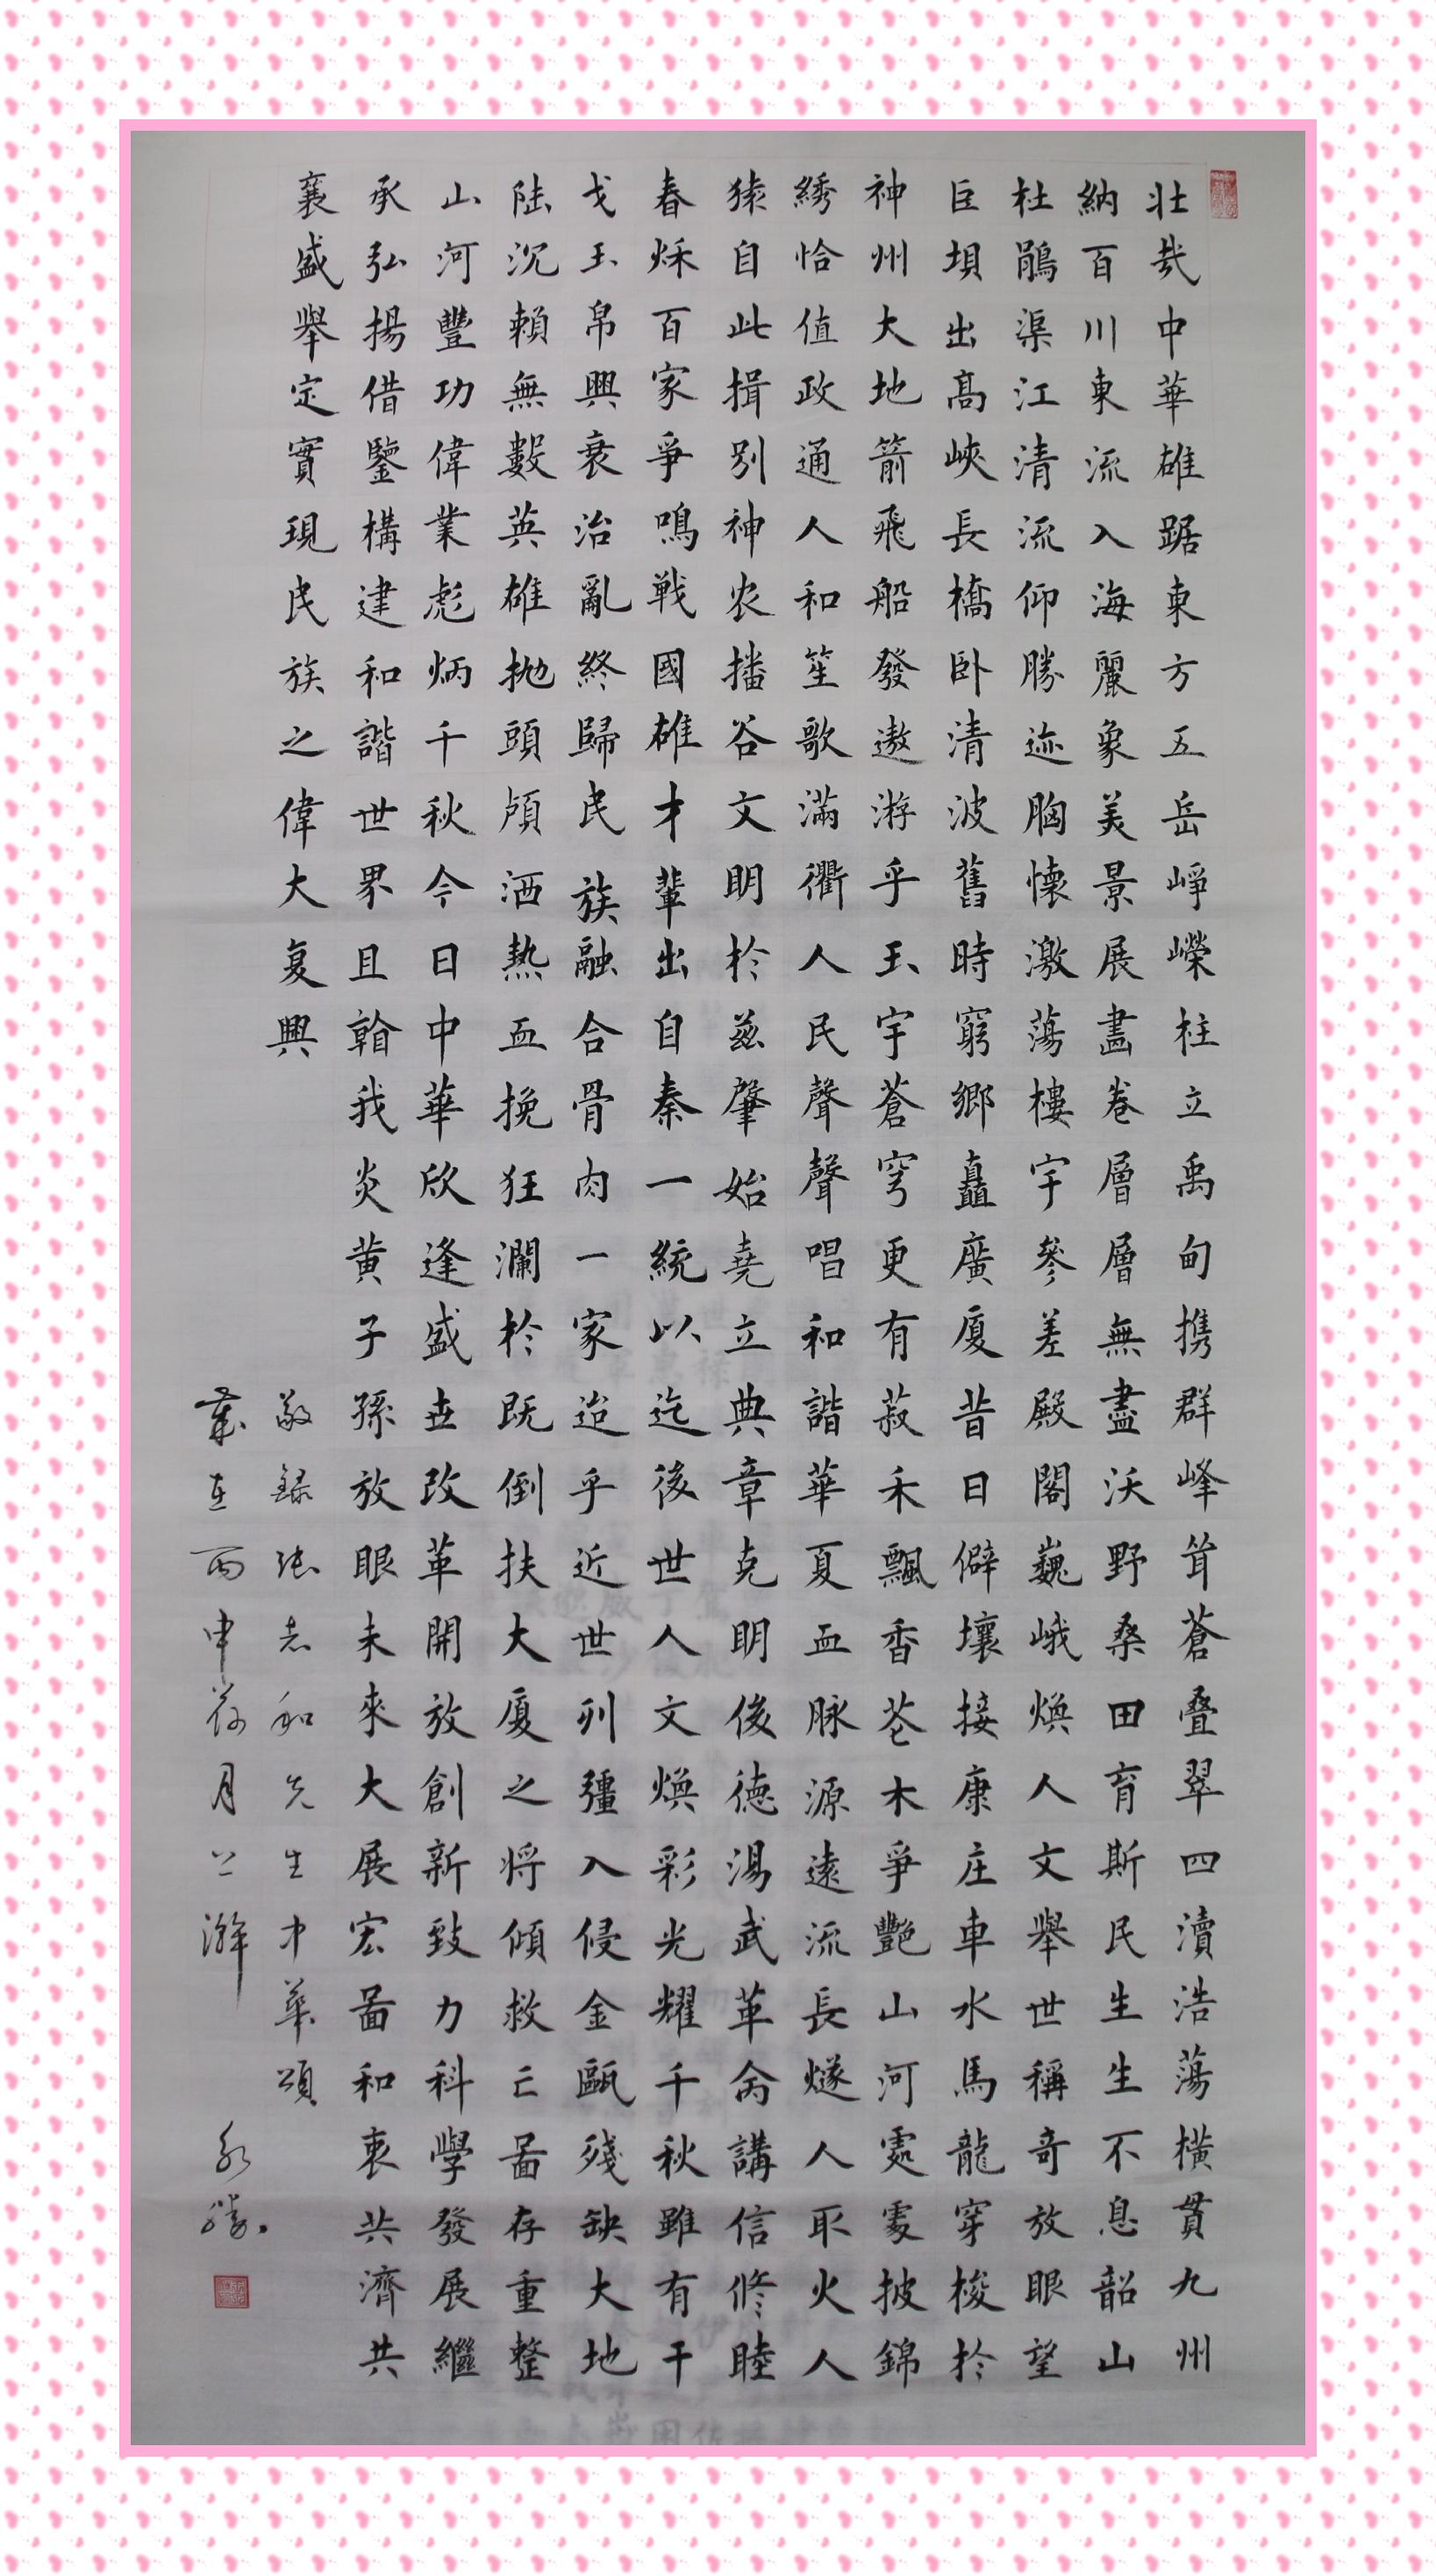 壮哉中華雄踞東方五岳崢嶸柱立禹甸携群峰耸蒼叠翠四瀆浩蕩橫貫九州
納百川東流入海麗象美景展畵卷層層無盡沃野桑田育斯民生生不息韶山
杜鵑渠江清流仰勝迹胸懷激蕩樓宇參差殿閣巍峨焕人文舉世稱奇放眼望
巨垻出高峽長橋卧清波舊時窮鄉矗廣厦昔日僻壤接康庄車水馬龍穿梭於
神州大地箭飛船發遨游乎玉宇蒼穹更有菽禾飄香苍木爭艷山河處處披錦
綉恰值政通人和笙歌滿衢人民聲聲唱和諧華夏血脉源遠流長燧人取火人
猿自此揖别神农播谷文明於兹肇始堯立典章克明俊德湯武革命講信修睦
春秋百家爭鳴戰國雄才輩出自秦一統以迄後世人文焕彩光耀千秋雖有干
戈玉帛興衰治亂終歸民族融合骨肉一家迨乎近世列彊入侵金甌殘缺大地
陆沉賴無數英雄抛頭顱洒熱血挽狂瀾於既倒扶大厦之将傾救亡啚存重整
山河豐功偉業彪炳千秋今日中華欣逢盛世改革開放創新致力科學發展繼
承弘揚借鑒構建和諧世界且翰我炎黄子孫放眼未來大展宏啚和衷共濟共
襄盛舉定實現民族之偉大复興
敬録張志和先生中華頌
歲在丙申荷月上澣 永勝